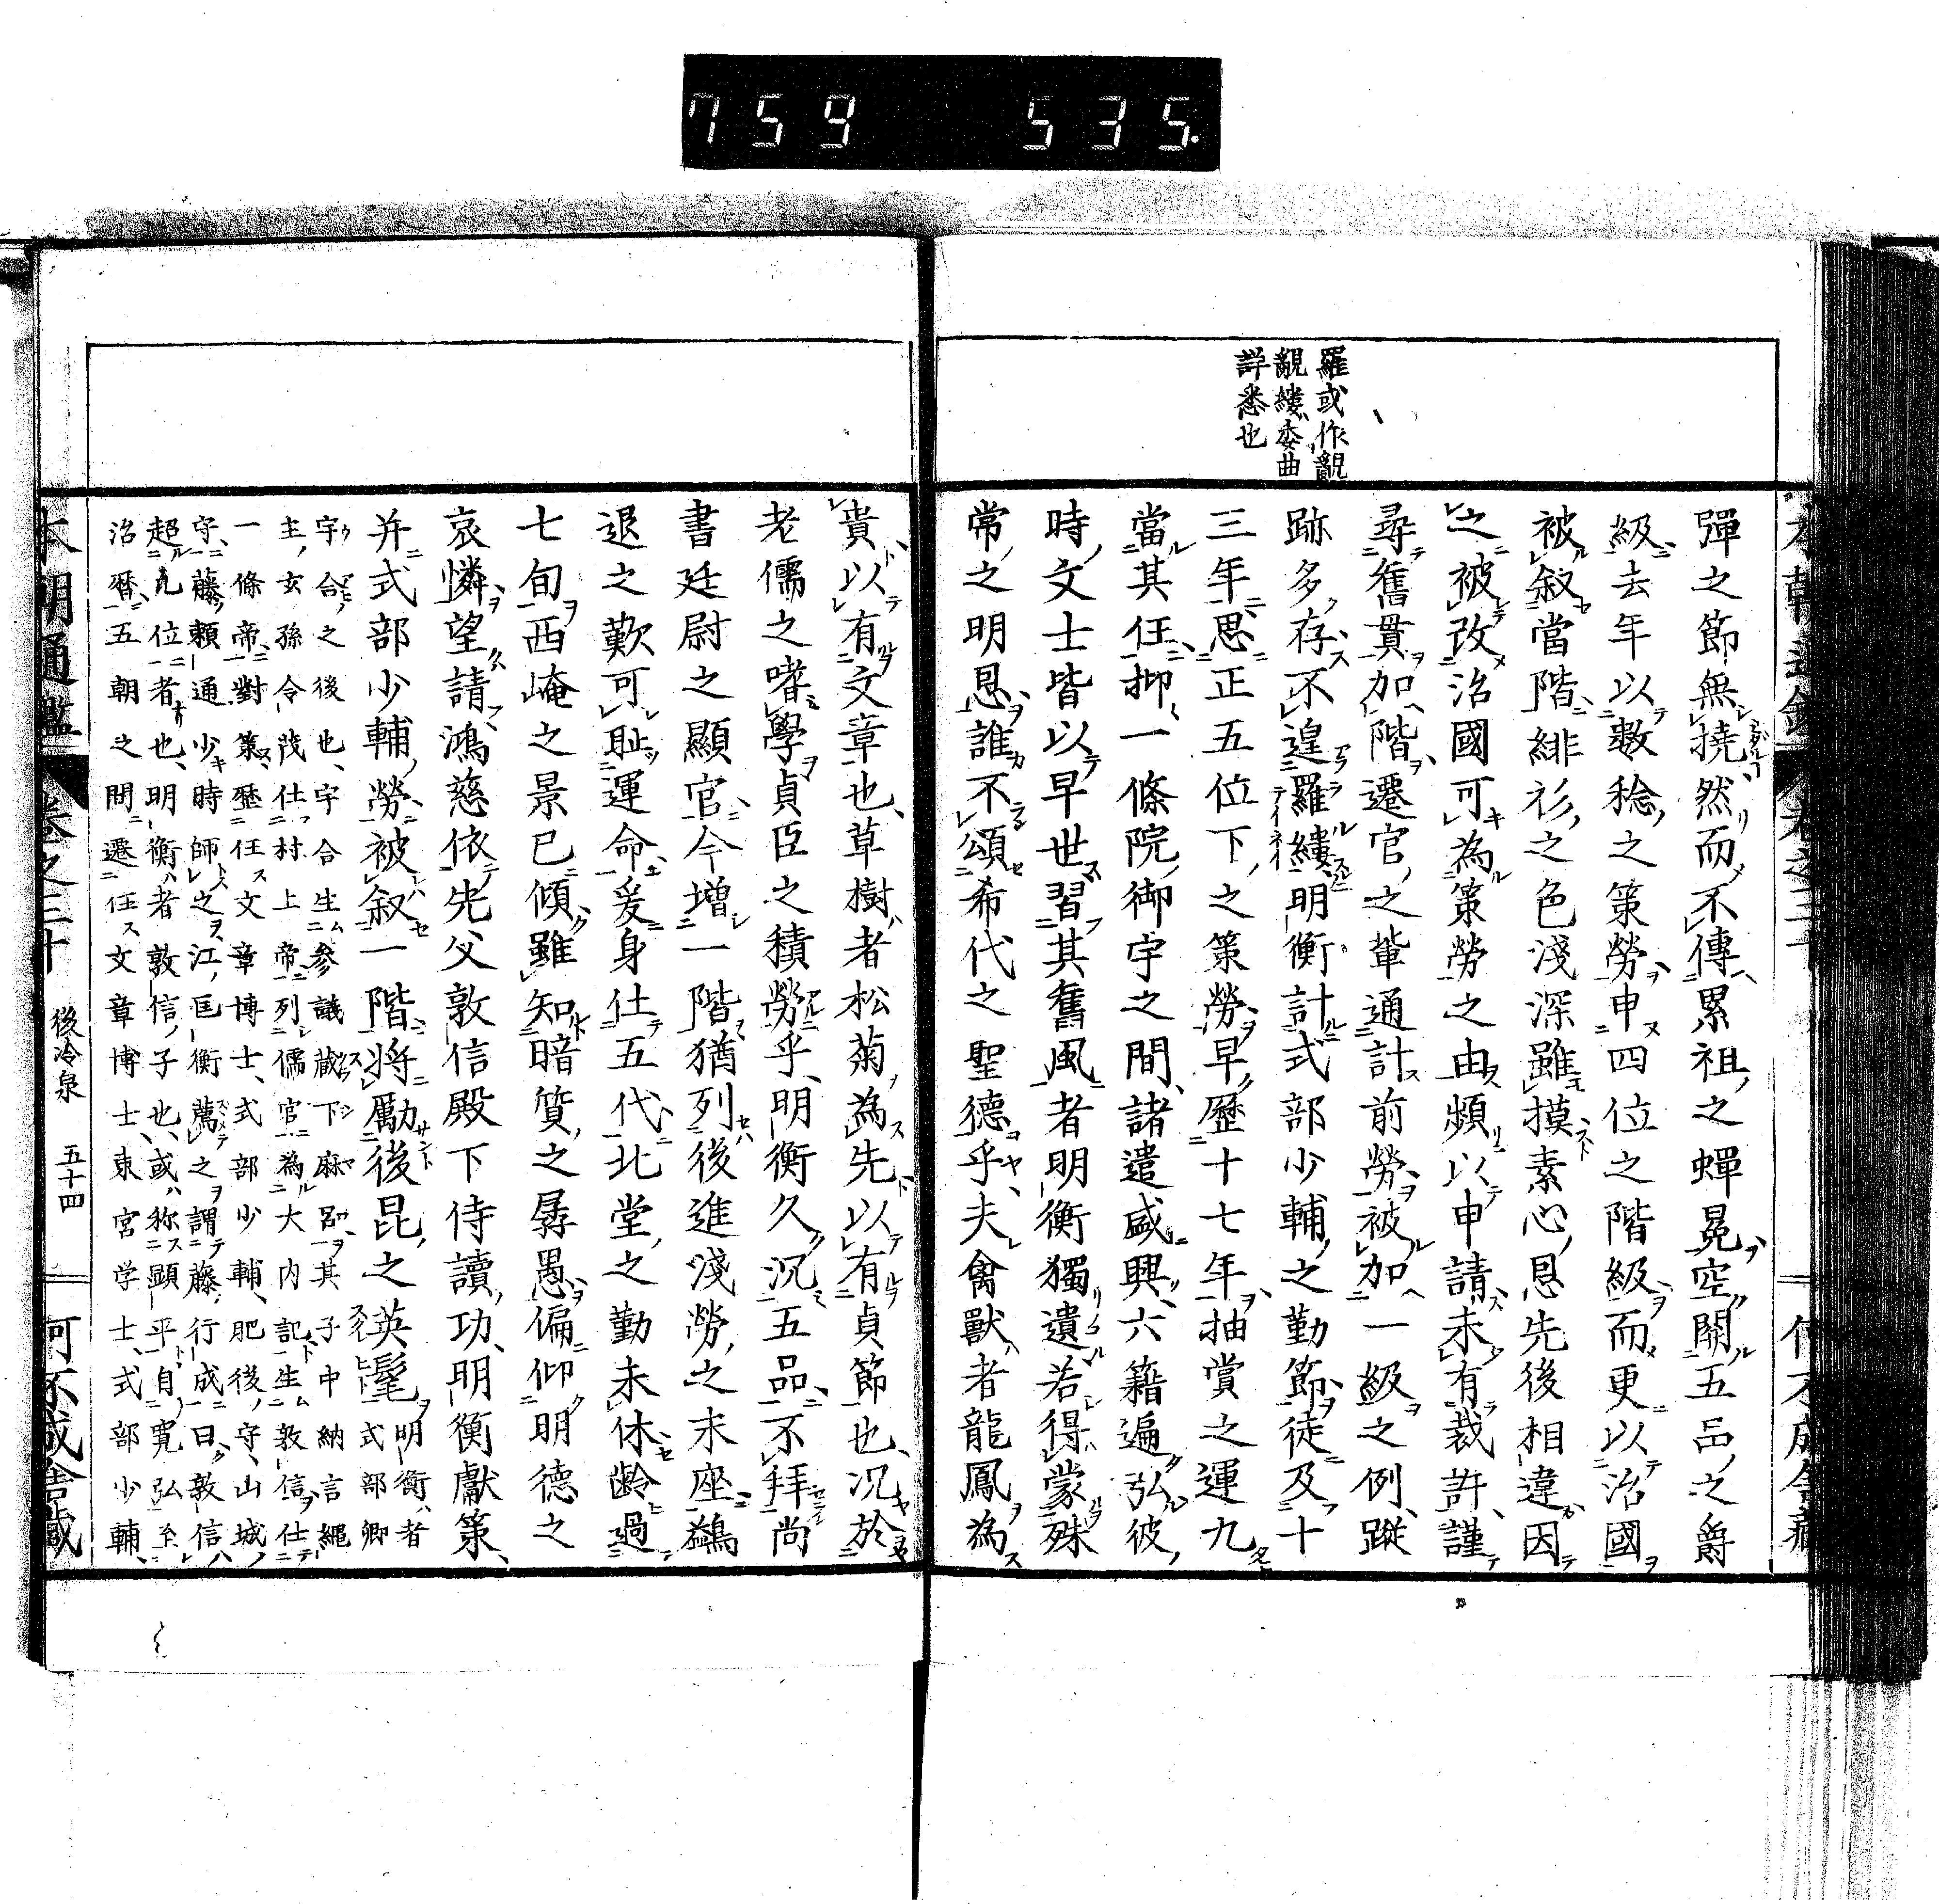 759 535.
羅或作覶
覶縷委曲
詳悉也
彈之節無撓然而不傳累祖之蟬冕空關五品之爵
級去年以數稔之策勞申四位之階級而更以治國
被叙當階緋衫之色淺深雖摸素心恩先後相違因
之被改治國可為策勞之由頻以申請未有裁許謹
尋舊貫加階遷官之輩通計前勞被加一級之例蹤
跡多存不遑羅縷明衡計式部少輔之勤節徒及十
三年思正五位下之策勞早歷十七年抽賞之運九
當其任抑一條院御宇之間諸遣盛興六籍遍弘彼
時文士皆以早世習其舊風者明衡獨遺若得蒙殊
常之明恩誰不頌希代之聖德乎夫禽獸者龍鳳為
貴以有文章也草樹者松菊為先以有貞節也况於
老儒之嗜學貞臣之積勞乎明衡久沉五品不拜尚
書廷尉之顯官今增一階猶列後進淺勞之末座鷁
退之歎可耻運命爰身仕五代北堂之勤未休齡過
七旬西崦之景已傾雖知暗質之孱愚偏仰明德之
哀憐望請鴻慈依先父敦信殿下侍讀功明衡獻策
并式部少輔勞被叙一階將勵後昆之英髦
明衡者式部卿
宇合之後也宇合生參議蔵下麻呂其子中納言繩
主玄孫令茂仕村上帝列儒官為大内記生敦信仕
一條帝對策歷任文章博士式部少輔肥後守山城
守藤賴通少時師之江匡衡薦之謂藤行成曰敦信
超九位者也明衡者敦信子也或称顕平自寛弘至
治暦五朝之間遷任文章博士東宮学士式部少輔
本朝通鑑 卷之三十 後冷泉 五十四